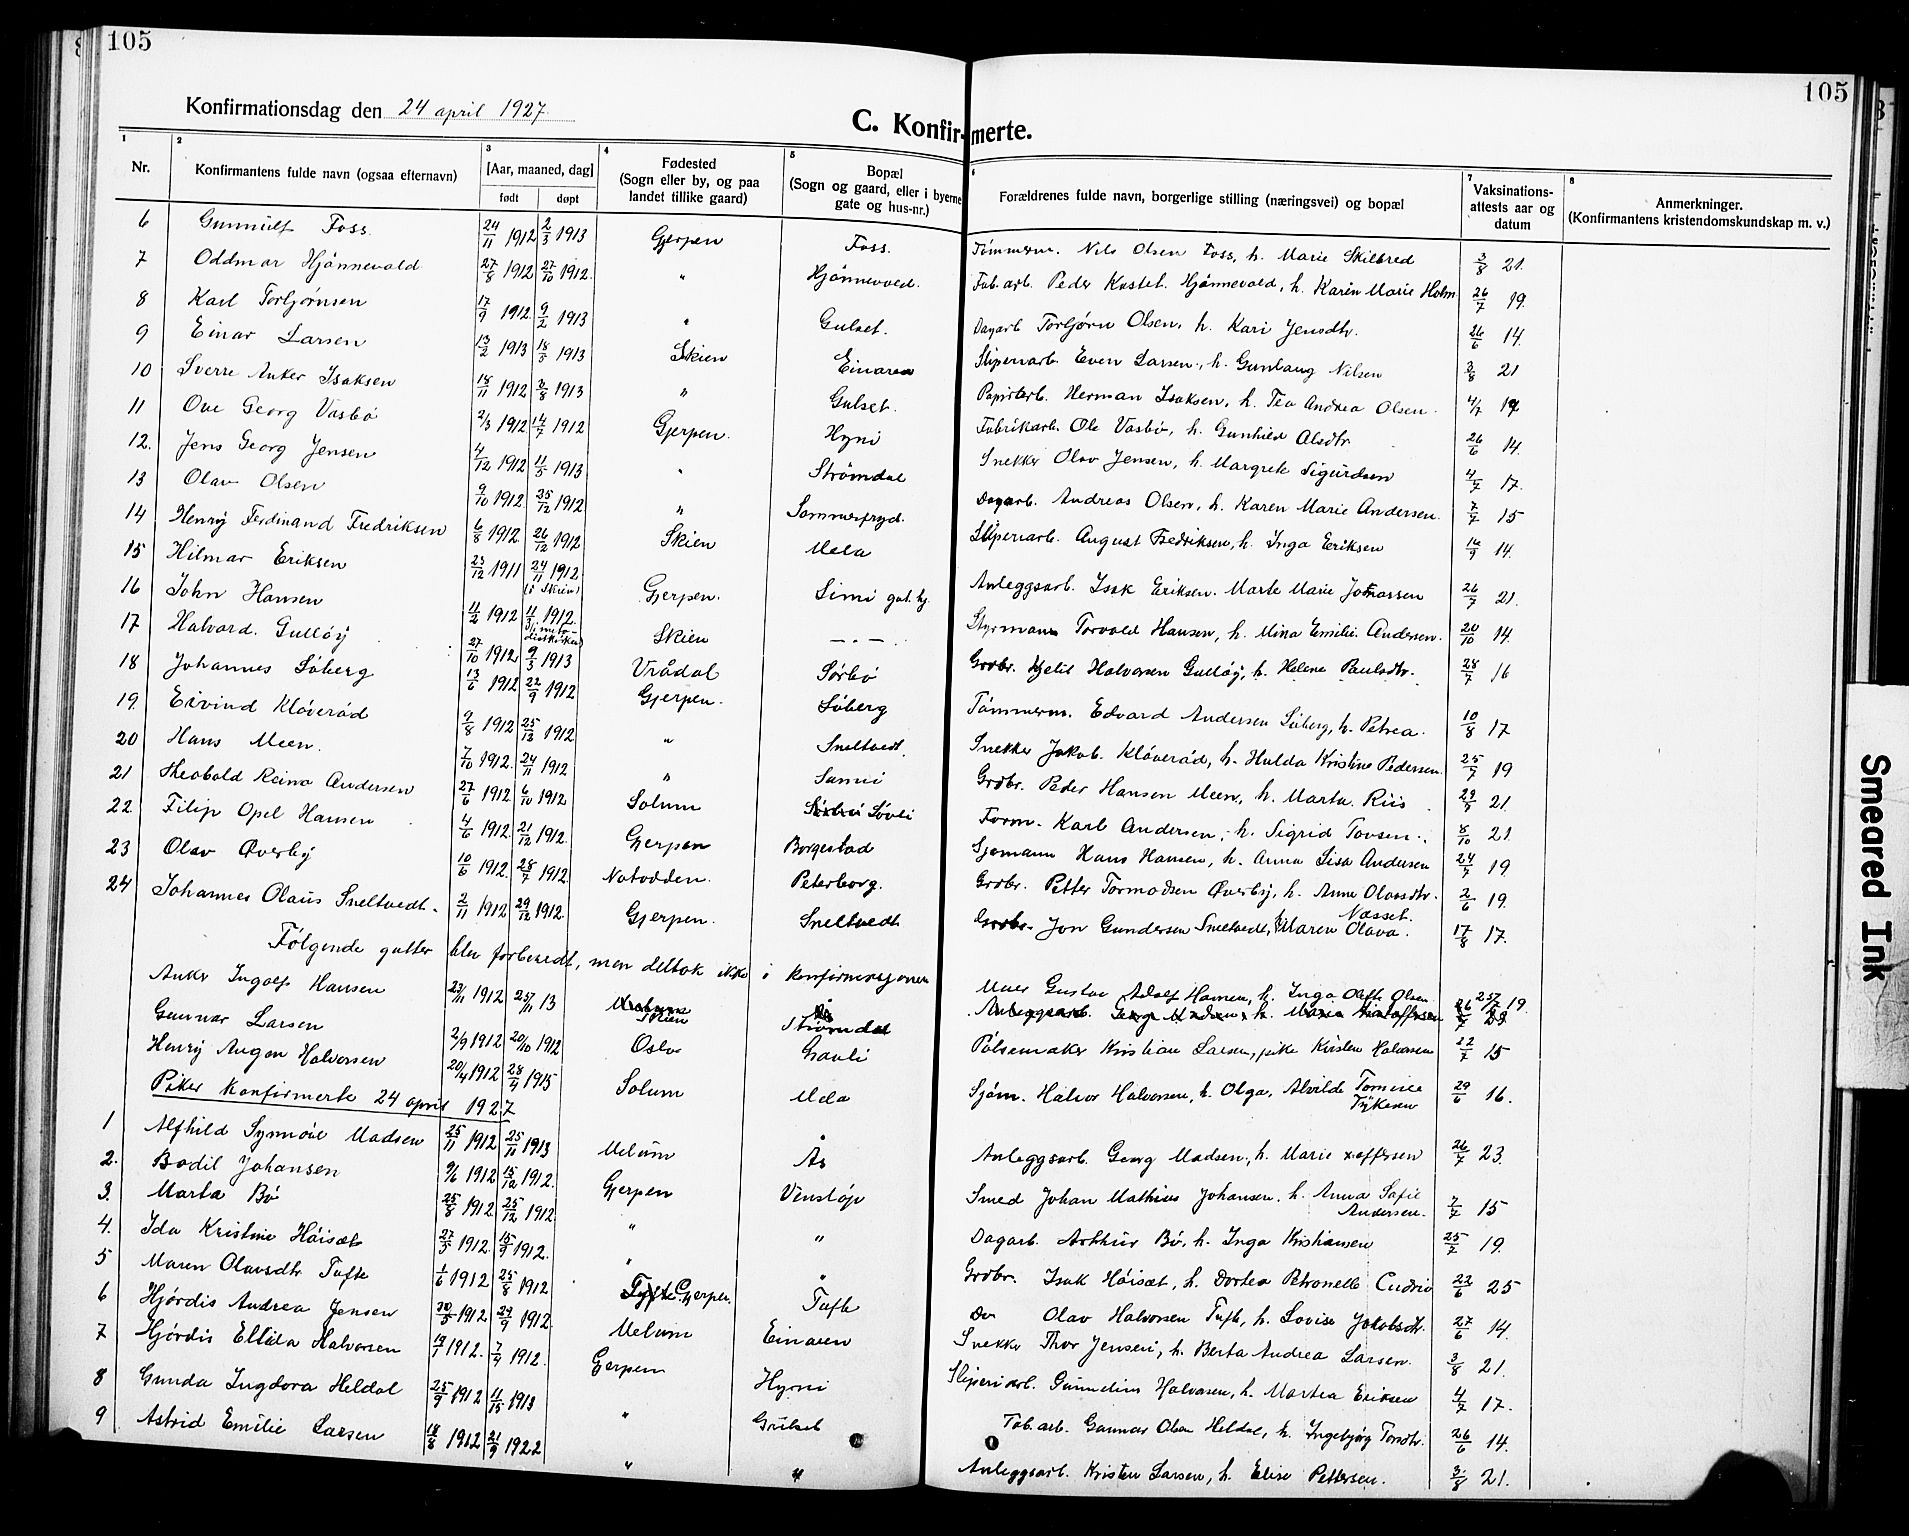 105
105
Konfirmationsdag den 24 april 1927.
C. Konfirmerte.
1 2 3 4 5 6 7 8
Nr. Konfirmantens fulde navn (ogsaa efternavn) [Aar, maaned, dag] født døpt Fødested (Sogn eller by, og paa landet tillike gaard) Bopæl (Sogn og gaard, eller i byerne gate og hus-nr.) Forældrenes fulde navn, borgerlige stilling (næringsvei) og bopæl Vaksinations-attests aar og datum Anmerkninger. (Konfirmantens kristendomskundskap m. v.)
6 Gunnulf Foss. 24/11 1912 2/3 1913 Gjerpen Foss. Tømmerm. Nils Olsen Foss, h. Marie Skilbred 3/8 21.
7 Oddmar Hjønnevald 27/8 1912 27/10 1912. " Hjønnevald. Fab.arb. Peder Kastet. Hjønnevald, h. Karen Marie Holm 26/7 19.
8 Karl Torbjørnsen 17/9 1912. 9/2 1913 " Gulset. Dagarb Torbjørn Olsen, h. Kari Jensdtr. 26/6 14.
9 Einar Larsen 13/2 1913 18/5 1913 Skien Einaren Sliperiarb. Even Larsen, h. Gunlaug Nilsen 3/8 21
10 Sverre Anker Isaksen 18/11 1912 3/8 1913 " Gulset. Papirarb. Herman Isaksen, h. Tea Andrea Olsen. 4/7 19
11 Ove Georg Vasbø 2/3 1912 14/7 1912 Gjerpen. Hyni Fabrikarb. Ole Vasbø, h. Gunhild Alsdtr. 26/6 14.
12. Jens Georg Jensen 4/12 1912 11/5 1913 " Strømdal Snekker Olav Jensen, h. Margrete Sigurdsen 4/7 17.
13 Olav Olsen 9/10 1912 25/12 1912 " Sommerfryd. Dagarb. Andreas Olsen, h. Karen Marie Andersen. 7/7 15
14 Henry Ferdinand Fredriksen 6/8 1912. 26/12 1912 Skien Mela Sliperiarb. August Fredriksen, h. Inga Eriksen 16/9 14.
15 Hilmar Eriksen 23/12 1911 24/11 1912 (i Skien) Gjerpen. Limi Anleggsarb. Isak Eriksen. Marte Marie Johnassen 26/7 21.
16 John Hansen 11/2 1912 11/8 1912. Skien —.—. Styrmann Torvald Hansen, h. Mina Emilie Andersen. 20/10 14.
17 Halvard. Gulløy 27/10 1912 9/3 1913 Vrådal Sørbø Grdbr. Kjetil Halvorsen Gulløy, h. Helene Paulsdtr. 28/7 16
18 Johannes Søberg 13/6 1912 22/9 1912 Gjerpen. Søberg Tømmerm. Edvard Andersen Søberg, h. Petrea. 10/8 17
19. Eivind Kløverød 9/8 1912 25/12 1912 " Sneltvedt. Snekker Jakob. Kløverød, h. Hulda Kristine Pedersen. 25/7 19
20 Hans Meen. 7/10 1912. 24/11 1912 " Sanni Grdbr. Peder Hansen Meen, h. Marta. Riis 29/7 21.
21 Theobald Reino Andersen 27/6 1912 6/10 1912 Solum Søvli Form. Karl Andersen, h. Sigrid Tovsen. 8/10 21
22. Filip Opel Hansen 4/6 1912. 21/12 1912. Gjerpen Borgestad Sjømann Hans Hansen, h. Anna Lisa Andersen 24/7 19
23 Olav Øverby 10/6 1912. 28/7 1912. Notodden. Peterborg. Grdbr. Petter Tormodsen Øverby, h. Anne Olavsdtr. 2/6 19.
24 Johannes Olaus Sneltvedt. 2/11 1912 29/12 1912. Gjerpen. Sneltvedt Grdbr. Jon Gundersen Sneltvedt, h. Maren Olava. Næsset. 17/8 17.
Følgende gutter blev forberedt, men deltok ikke i konfirmasjonen
Anker Ingolf Hansen 23/11 1912 25/11 13 Skien Strømdal Murer Gustav Adolf Hansen, h. Inga Olefte Olsen 25/7 19.
Gunnar Larsen 2/9 1912 20/10 1912 Oslo Gravli Pølsemaker Kristian Larsen, pike Kirsten Halvorsen 22/7 15
Henry Augon Halvorsen 20/4 1912 28/4 1915 Solum Mela Sjøm. Halvor Halvorsen, h. Olga. Alvilde Tomine Tykesen 29/6 16.
Piker konfirmerte 24 april 1927
1 Alfhild Synnøve Madsen 25/11 1912 25/11 1913 Melum Ås Anleggsarb. Georg Madsen, h. Marie 26/7 23.
2. Bodil Johansen 9/6 1912 15/12 1912. Gjerpen Venstøp Smed Johan Mathius Johansen. h. Anna Sofie Andersen. 7/7 15
3. Marta Bø 25/8 1912 25/12 1912 " " Dagarb. Arthur Bø, h. Inga Kristiansen 25/7 19.
4. Ida Kristine Høisæt 27/5 1912. 15/9 1912. " " Grdbr. Isak Høisæt, h. Dortea Petronelle 22/6 25
5 Maren Olavsdtr Tufte 1/6 1912 25/8 1912 Gjerpen. Tufte Do Olav Halvorsen Tufte, h. Lovise Jakobsdtr. 27/6 14.
6 Hjørdis Andrea Jensen 30/5 1912 29/9 1912. Melum Einaren Snekker Thor Jensen, h. Berta Andrea Larsen. 3/8 21.
7 Hjørdis Ellida Halvorsen 19/1 1912. 7/4 1912. Gjerpen Hyni Sliperiarb. Gunnelius Halvorsen, h. Martea Eriksen 4/7 17.
8 Gunda Ingdora Heldal 25/9 1912 11/15 1913 " Gulset Fab.arb. Gunnar Olsen Heldal, h. Ingebjørg Torsdtr. 26/6 14.
9 Astrid Emilie Larsen 18/8 1912 21/9 1922 " " Anleggsarb. Kristen Larsen, h. Elise Pettersen. 3/8 21.
Smeared Ink